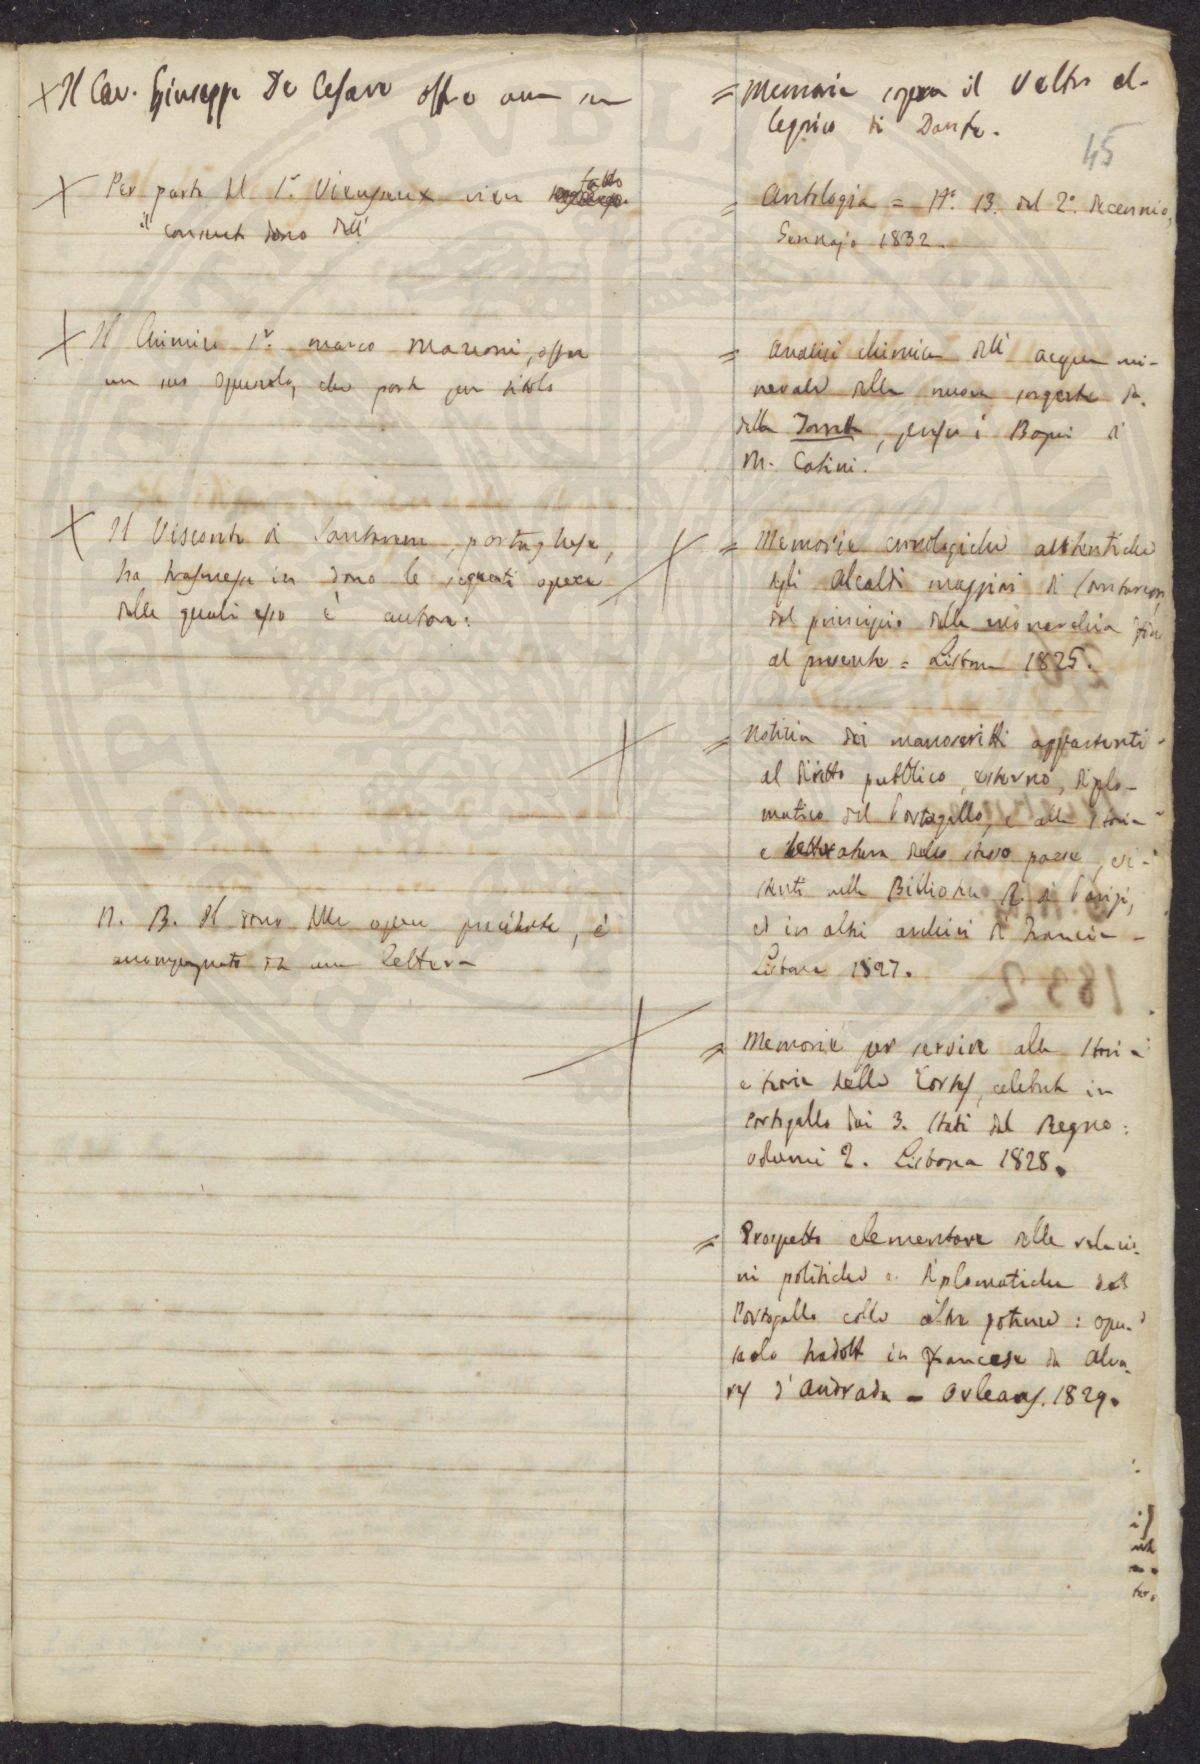 Il Cav. Giuseppe De Cesare offre una sua
= Memoria sopra il Veltro al-
legorico di Dante.
45
Per parte del Sr. Vieusseux vien fatto
il consueto dono dell'
= Antologia = No. 13. del 2o. decennio,
Gennajo 1832.
Il Chimico Sr. Marco Marconi, offre
un suo opuscolo, che porta per titolo
= Analisi chimica dell' acqua mi-
nerale della nuova sorgente da.
della Torretta, presso i Bagni di
M. Catini.
Il Visconte di Santarem, portoghese,
ha trasmesso in dono le seguenti opere
delle quali esso è autore:
= Memorie cronologiche autentiche
degli Alcaldi maggiori di Santarem,
dal principio della monarchia fino
al presente = Lisbona 1825.
= Notizia dei manoscritti appartenti
al diritto pubblico, esterno, diplo-
matico del Portogallo, e alla Storia
e letteratura dello stesso paese, esi-
stenti nella Biblioteca R. di Parigi,
ed in altri archivi di Francia -
Lisbona 1827.
N. B. Il dono delle opere precitate, è
accompagnato da una Lettera
= Memorie per servire alla Storia
e teoria delle Cortes, celebrate in
Portogallo dai 3. Stati del Regno:
volumi 2. Lisbona 1828.
= Prospetto elementare delle relazio-
ni politiche e diplomatiche del
Portogallo colle altre potenze: opu-
scolo tradotto in francese da Alva-
rez d'Andrada - Orleans. 1829.